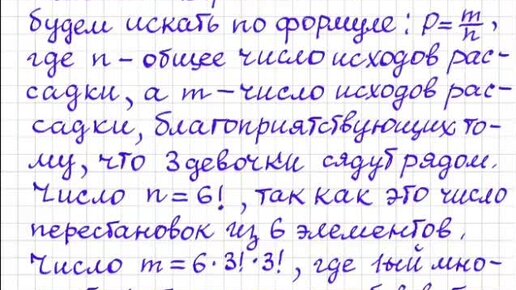 будем искать по формуле: P=m/n,
где n – общее число исходов рас-
садки, а m – число исходов рас-
садки, благоприятствующих то-
му, что 3 девочки сядут рядом.
Число n = 6! , так как это число
перестановок из 6 элементов.
Число m = 6·3!·3! , где 1ый мно-